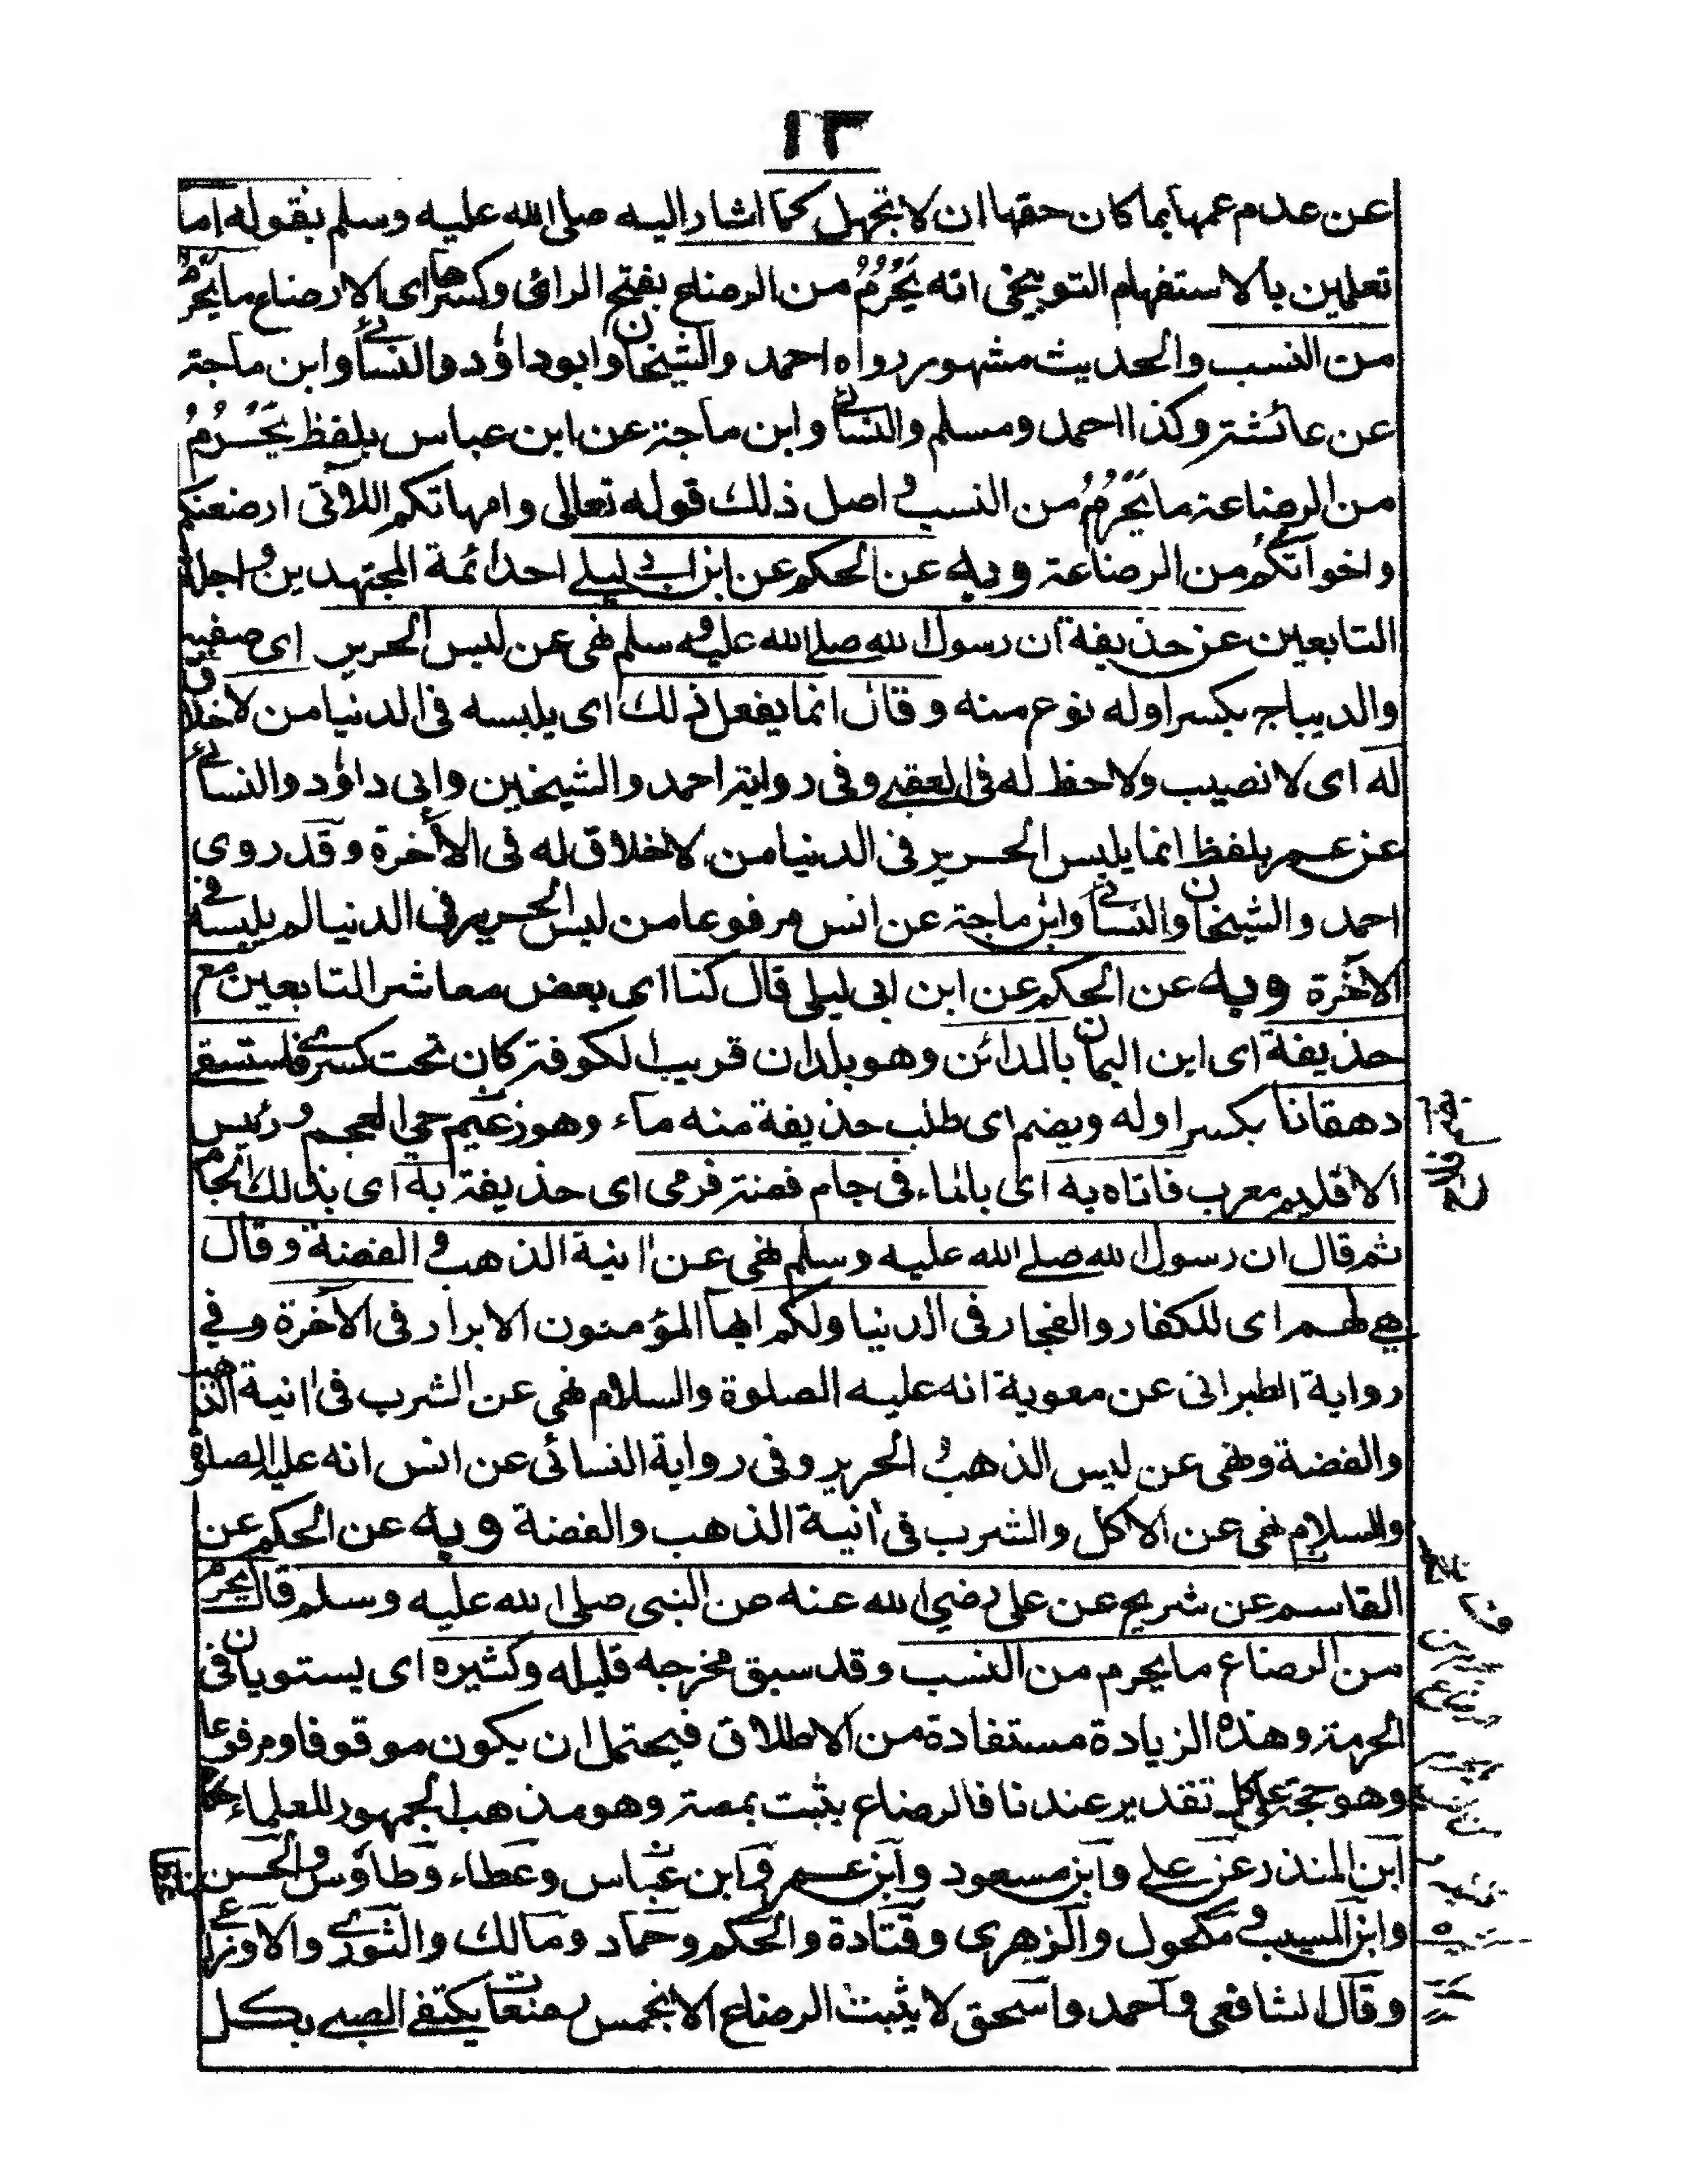 ١٣
عن عدم عمها بما كان حقها ان لا تجهل كما اشار اليه صلى الله عليه وسلم بقوله اما
تعلمين بالاستفهام التوبيخى انه يَحْرُمُ من الرضاع بفتح الراء وكسرها اى الارضاع ما يحرم
من النسب والحديث مشهور رواه احمد والشيخان وابوداؤد والنسائى وابن ماجة
عن عائشة وكذا احمد ومسلم والنسائى وابن ماجة عن ابن عباس بلفظ يَحْرُمُ
من الرضاعة ما يَحْرُمُ من النسب و اصل ذلك قوله تعالى وامهاتكم اللاتى ارضعنكم
واخواتكم من الرضاعة وبه عن الحكم عن ابن ابى ليلى احد ائمة المجتهدين و اجلة
التابعين عن حذيفة ان رسول الله صلى الله عليه و سلم نهى عن لبس الحرير اى صفيه
والديباج بكسر اوله نوع منه وقال انما يفعل ذلك اى يلبسه فى الدنيا من لا خلاق
له اى لا نصيب ولا حظ له فى العقبى وفى رواية احمد والشيخين وابى داؤد والنسائى
عن عمر بلفظ انما يلبس الحرير فى الدنيا من لا خلاق له فى الآخرة وقد روى
احمد والشيخان والنسائى وابن ماجة عن انس مرفوعا من لبس الحرير فى الدنيا لم يلبسه فى
الآخرة وبه عن الحكم عن ابن ابى ليلى قال كنا اى بعض معاشر التابعين مع
حذيفة اى ابن اليمان بالمدائن وهو بلدان قريب الكوفة كان تحت كسرى فاستسقى
دهقانا بكسر اوله ويضم اى طلب حذيفة منه ماء وهو زعيم حى العجم و رئيس
الاقليم معرب فاتاه به اى بالماء فى جام فضة فرمى اى حذيفة به اى بذلك الجام
ثم قال ان رسول الله صلى الله عليه وسلم نهى عن انية الذهب و الفضة وقال
هى لهم اى للكفار والفجار فى الدنيا ولكم ايها المؤمنون الابرار فى الآخرة وفى
رواية الطبرانى عن معوية انه عليه الصلوة والسلام نهى عن الشرب فى انية الذهب
والفضة ونهى عن لبس الذهب و الحرير وفى رواية النسائى عن انس انه عليه الصلوة
والسلام نهى عن الاكل والشرب فى انية الذهب والفضة وبه عن الحكم عن
القاسم عن شريح عن على رضى الله عنه عن النبى صلى الله عليه وسلم قال يحرم
من الرضاع ما يحرم من النسب وقد سبق مخرجه قليله وكثيره اى يستويان فى
الحرمة وهذه الزيادة مستفادة من الاطلاق فيحتمل ان يكون موقوفا ومرفوعا
وهو حجة على كل تقدير عندنا فالرضاع يثبت بمصة وهو مذهب الجمهور للعلماء
ابن المنذر عن على وابن مسعود وابن عمر وابن عباس وعطاء وطاؤس والحسن
وابن المسيب و مكحول والزهرى وقتادة والحكم وحماد ومالك والثورى والاوزاعى
وقال الشافعى واحمد واسحق لا يثبت الرضاع الا بخمس رضعات يكتفى الصبى بكل